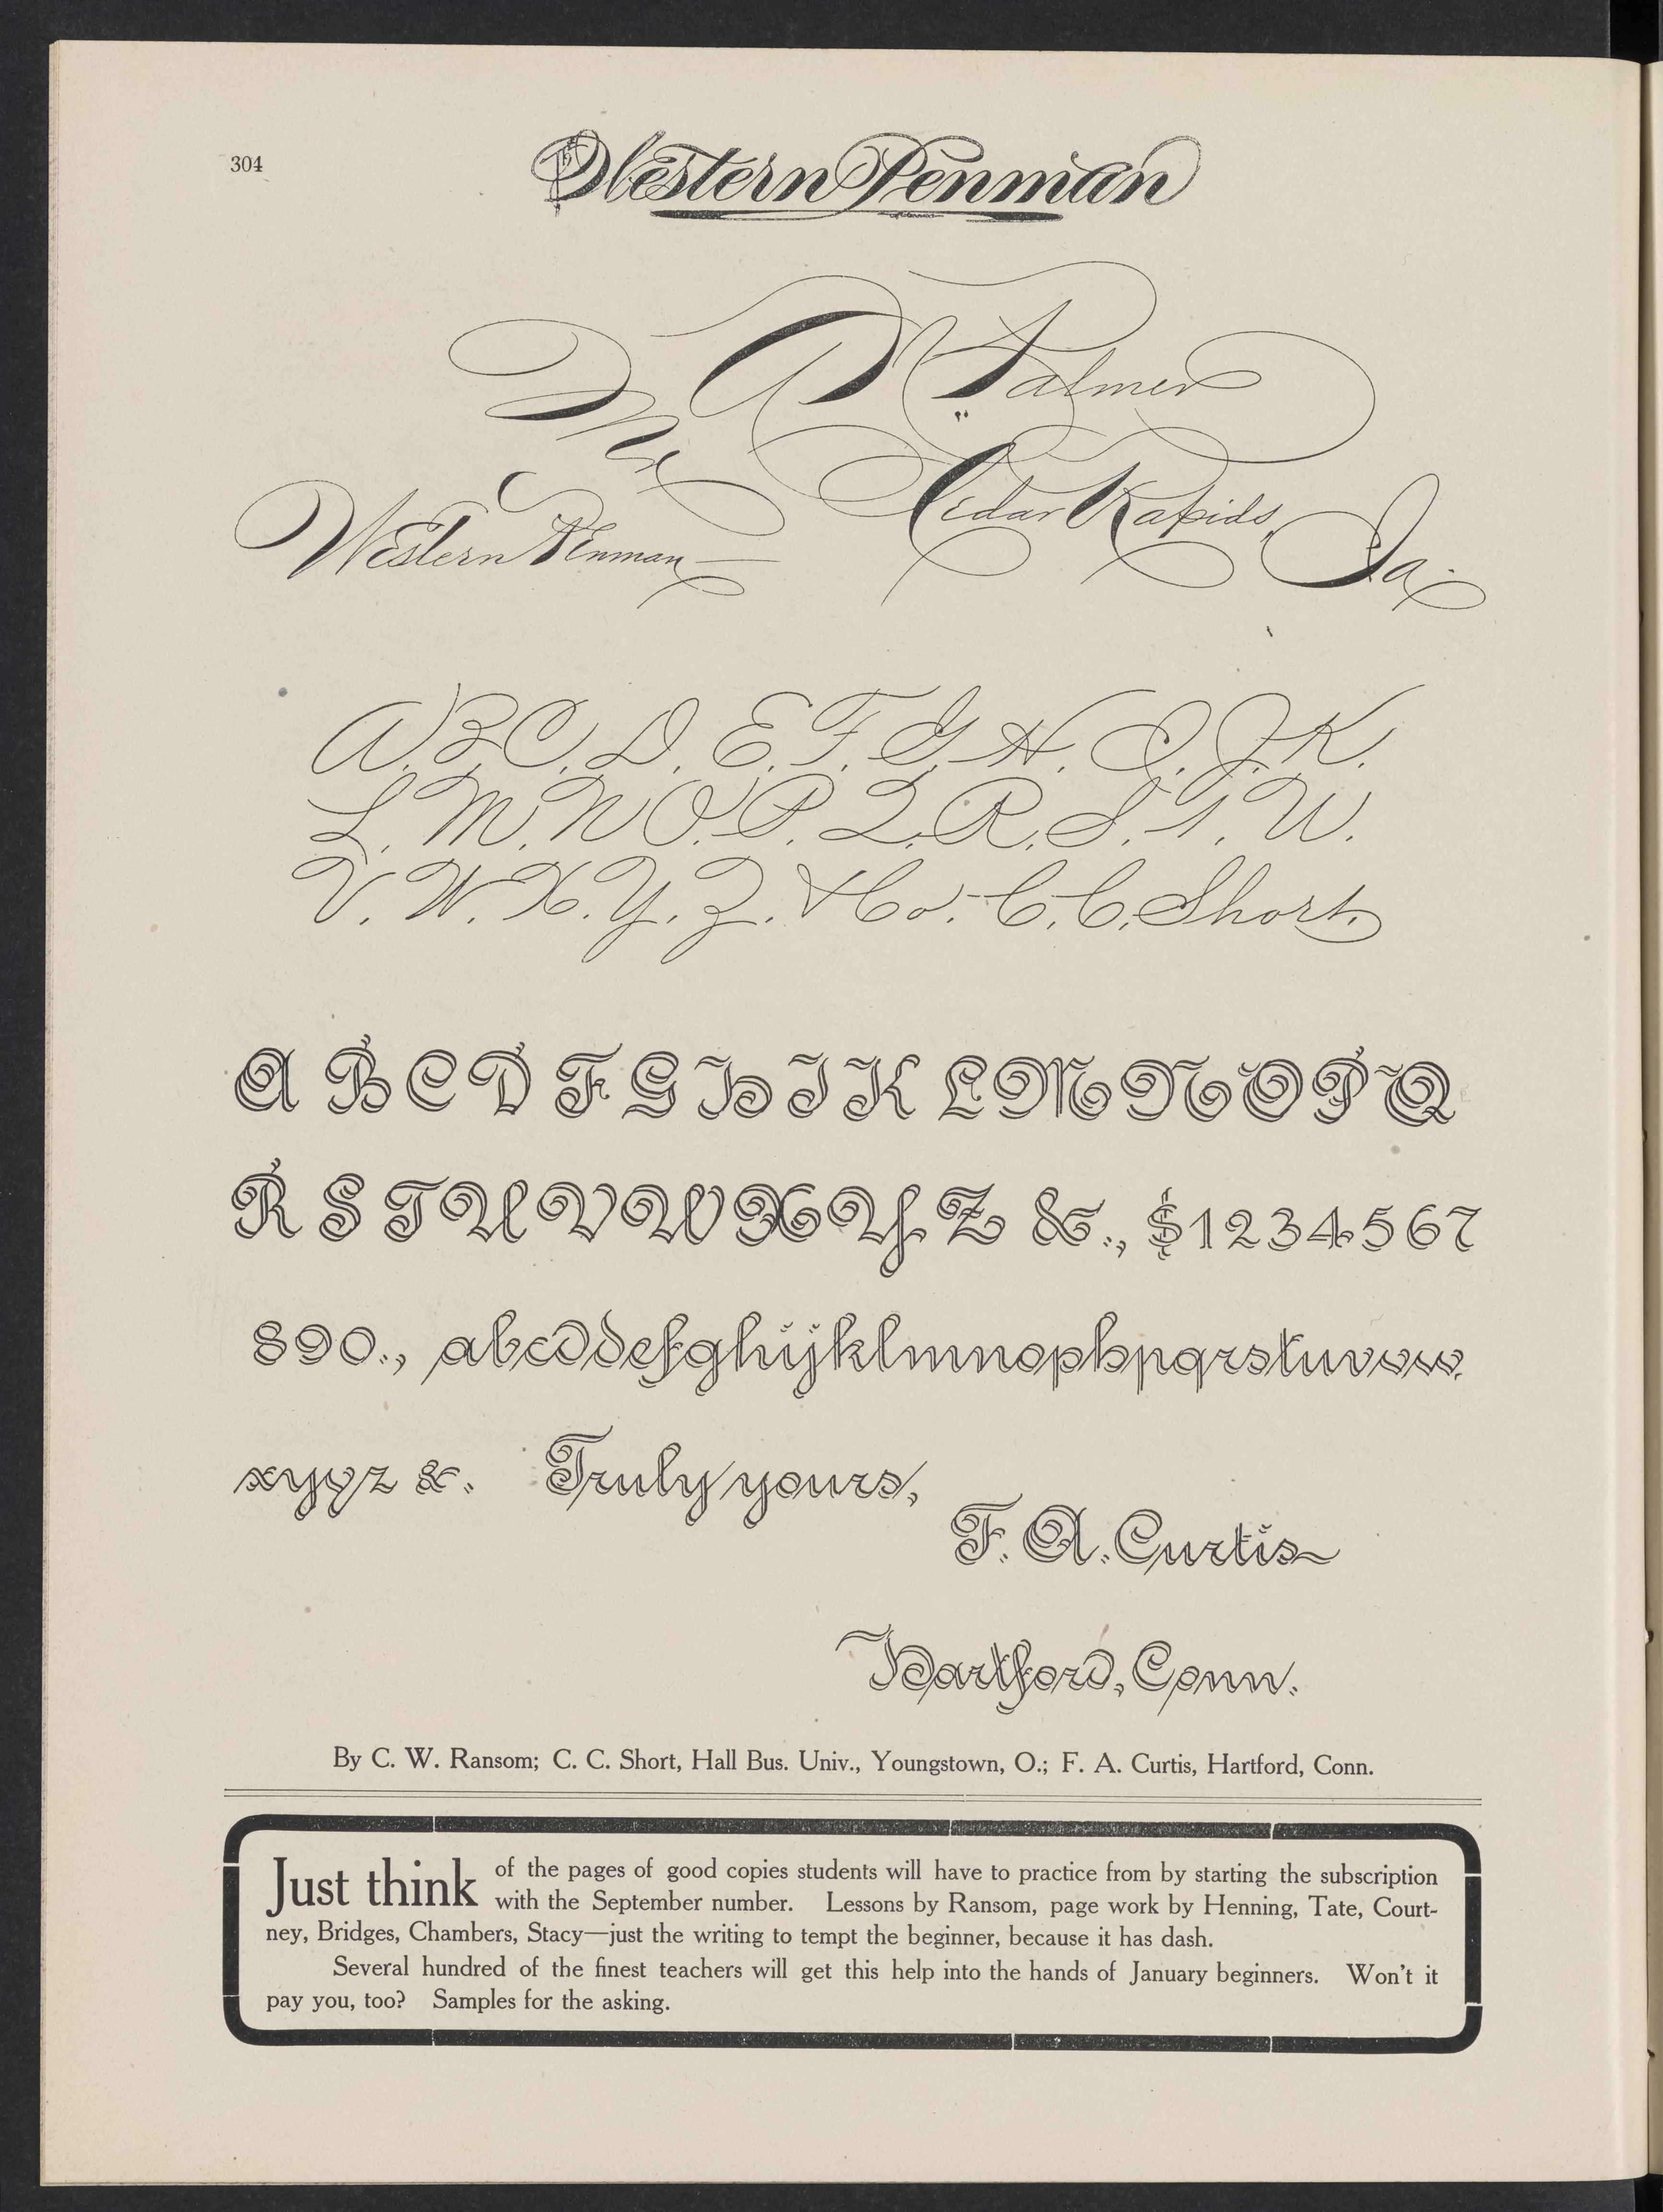 304
The Western Penman
A N Palmer
The
Cedar Rapids, Ia.
Western Penman
A. B. C. D. E. F. G. H. I. J. K.
L. M. N. O. P. Q. R. S. T. U.
V. W. X. Y. Z. & Co. - C. C. Short.
A B C D F G H I K L M N O P Q
R S T U V W X Y Z &., $1234567
890., abcddefghijklmnopppqrstuvvw.
xyyz &. Truly yours,
F. A. Curtis
Hartford, Conn.
By C. W. Ransom; C. C. Short, Hall Bus. Univ., Youngstown, O.; F. A. Curtis, Hartford, Conn.
Just think of the pages of good copies students will have to practice from by starting the subscription
with the September number. Lessons by Ransom, page work by Henning, Tate, Court-
ney, Bridges, Chambers, Stacy—just the writing to tempt the beginner, because it has dash.
Several hundred of the finest teachers will get this help into the hands of January beginners. Won't it
pay you, too? Samples for the asking.